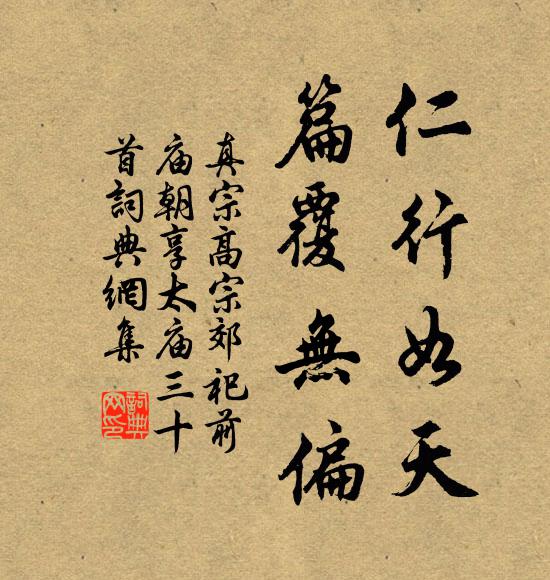 仁行如天
篇覆無偏
真宗高宗郊祀前
庙朝享太庙三十
首詞典網集
詞典网印